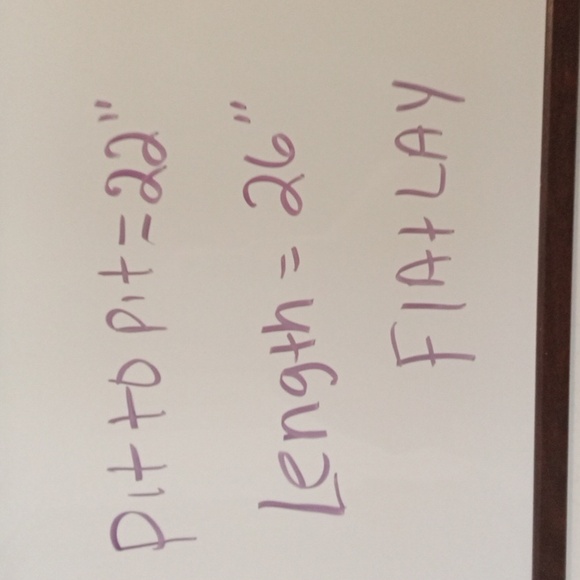 Pit to pit = 22"
Length = 26"
FlAt LAY